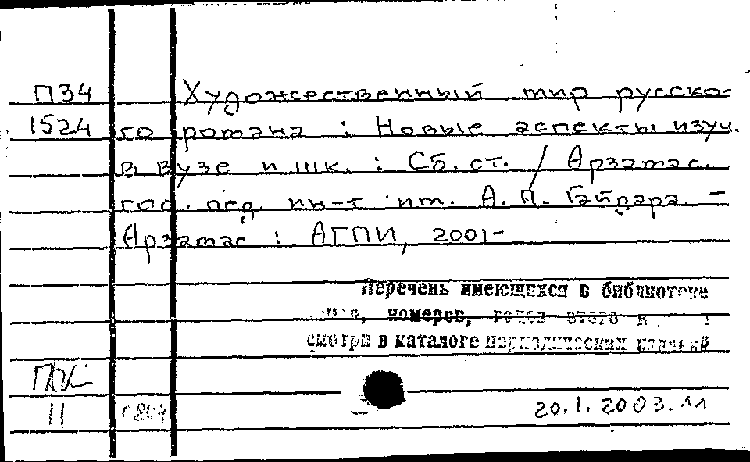 П34 Художественный мир русско-
1524 го романа : Новые аспекты изуч.
в вузе и шк. : Сб. ст. / Арзамас.
гос. пед. ин-т им. А. П. Гайдара. –
Арзамас : АГПИ, 2001-
Перечень имеющихся в библиотеке
номеров,
смотри в каталоге периодических изданий
11 20.1.2003.